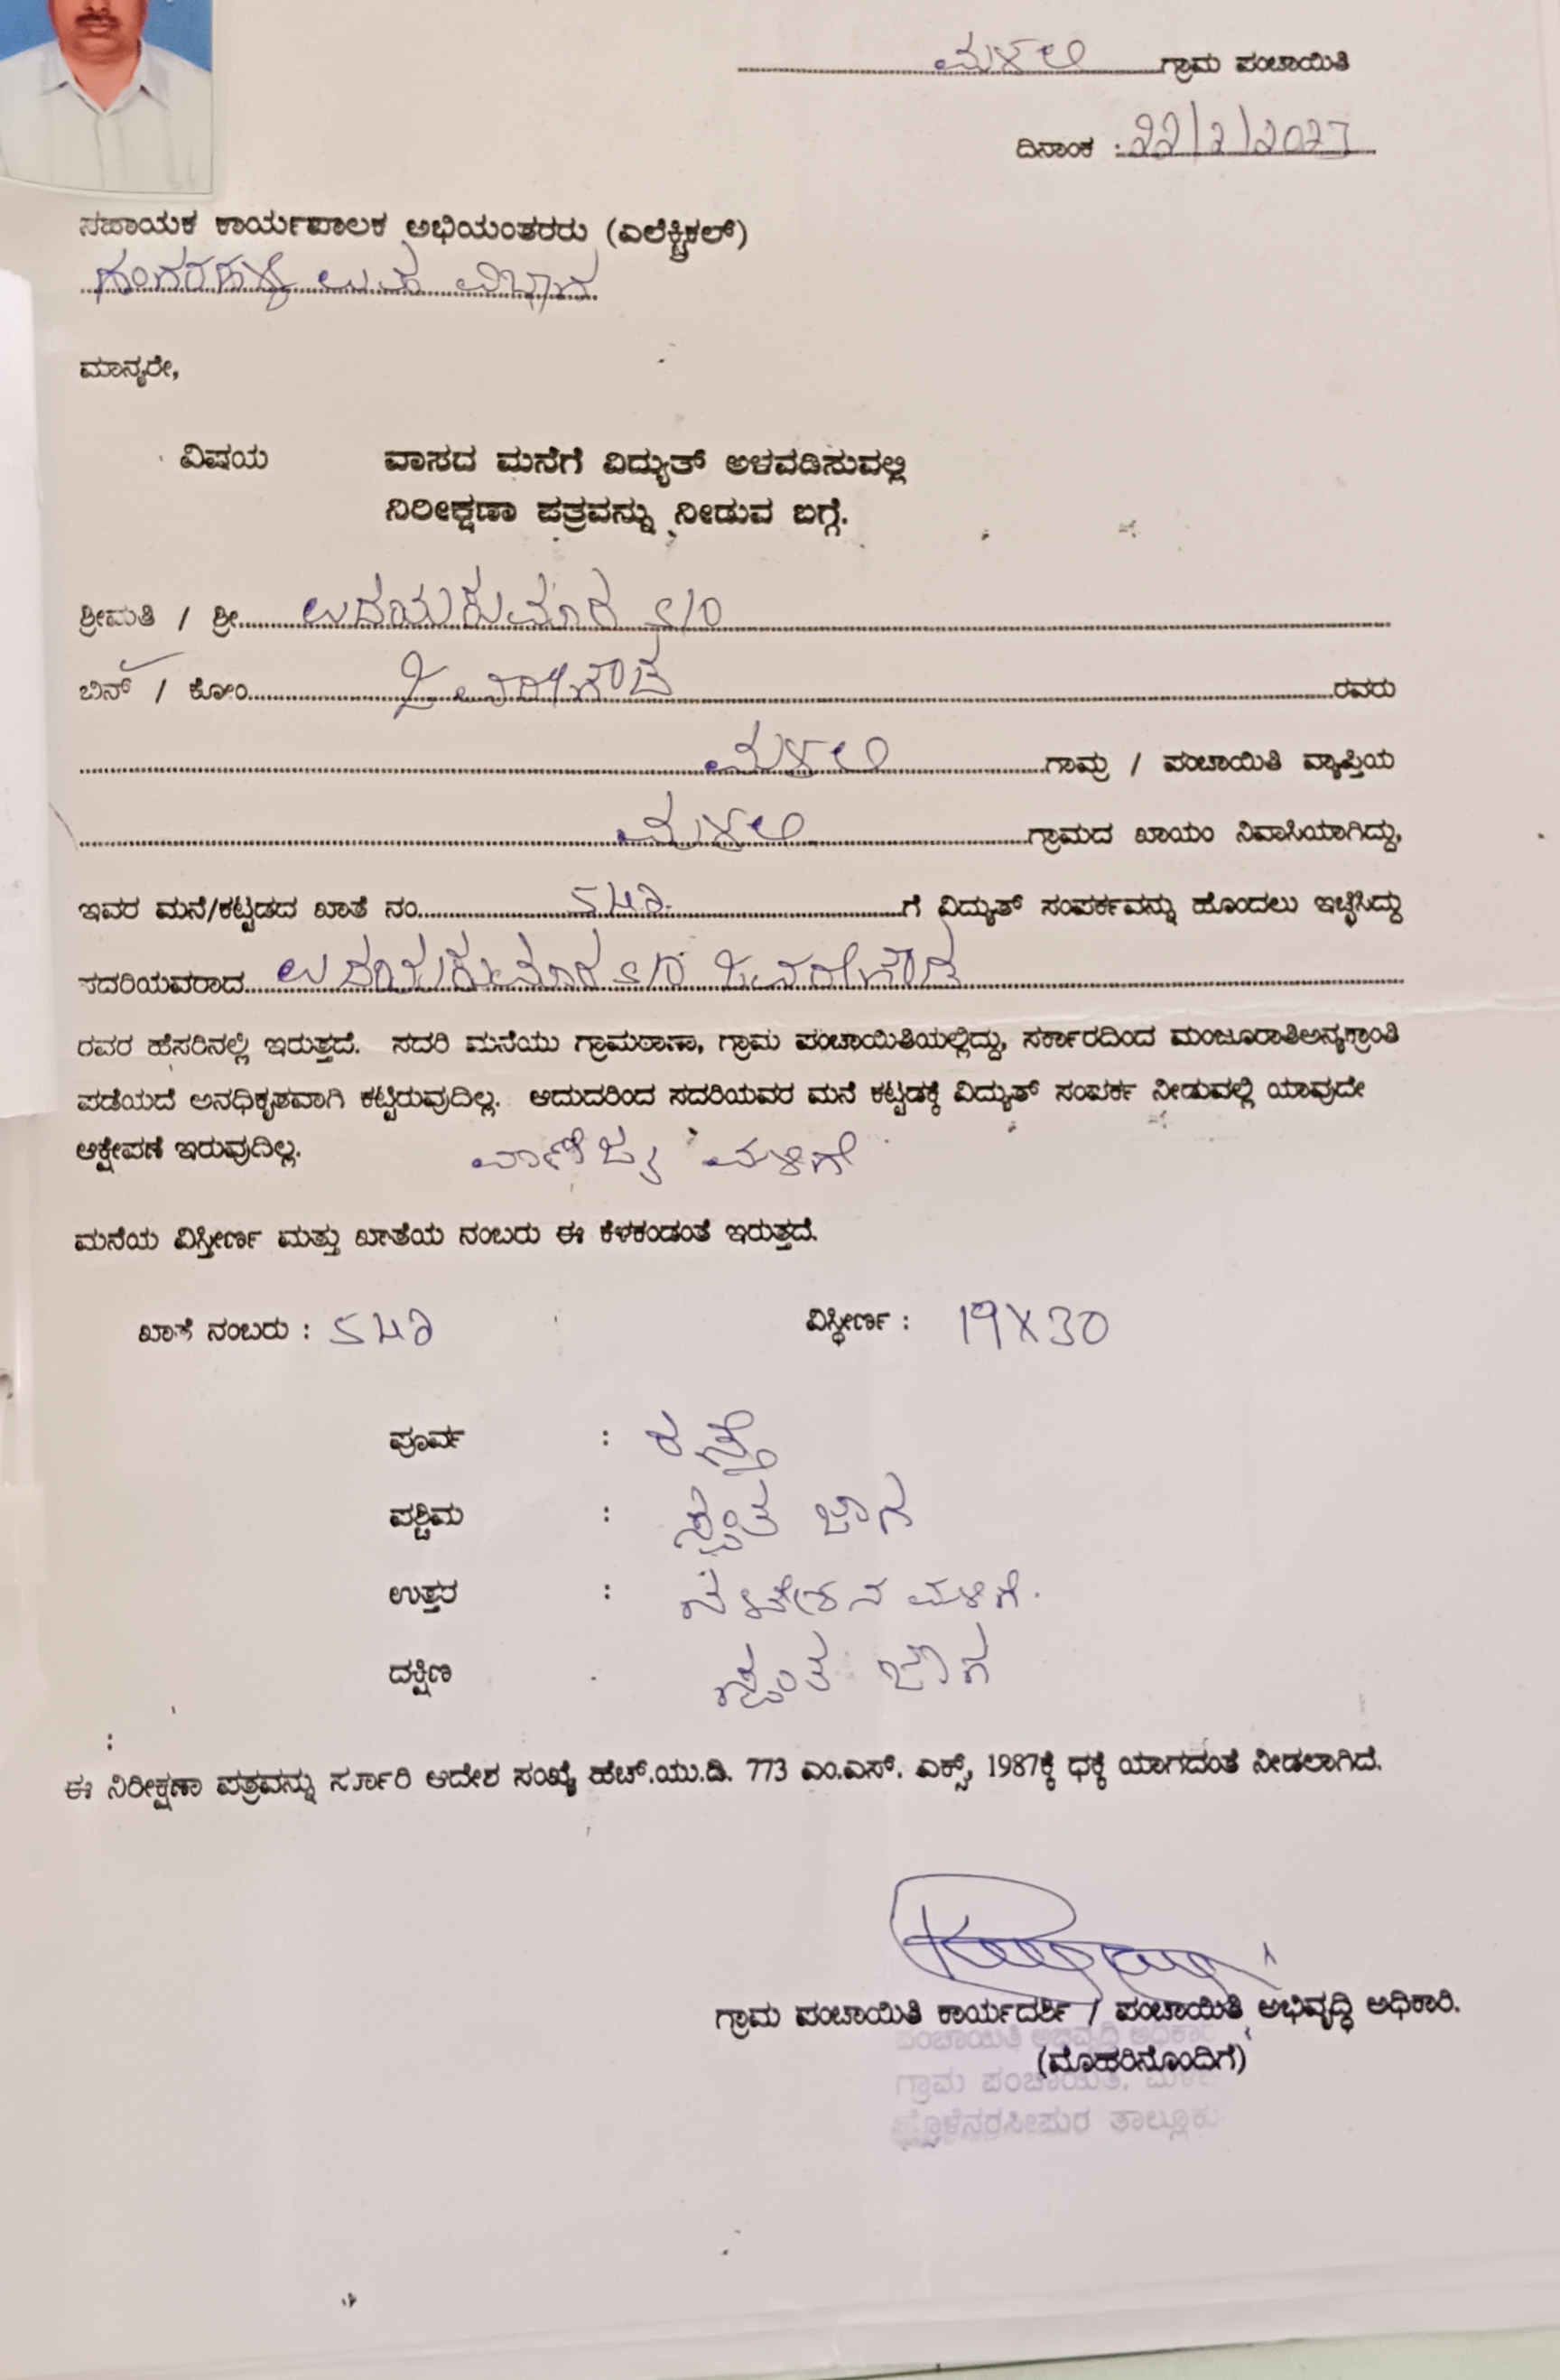 ಮಳಲಿ ಗ್ರಾಮ ಪಂಚಾಯಿತಿ
ದಿನಾಂಕ : 22/2/2023
ಸಹಾಯಕ ಕಾರ್ಯಪಾಲಕ ಅಭಿಯಂತರರು (ಎಲೆಕ್ಟ್ರಿಕಲ್)
ಉಪ ವಿಭಾಗ
ಮಾನ್ಯರೇ,
ವಿಷಯ ವಾಸದ ಮನೆಗೆ ವಿದ್ಯುತ್ ಅಳವಡಿಸುವಲ್ಲಿ
ನಿರೀಕ್ಷಣಾ ಪತ್ರವನ್ನು ನೀಡುವ ಬಗ್ಗೆ.
ಶ್ರೀಮತಿ / ಶ್ರೀ ಉದಯಕುಮಾರ S/O
ಬಿನ್ / ಕೋಂ ಜವರೇಗೌಡ ರವರು
ಮಳಲಿ ಗಾಮ್ರ / ಪಂಚಾಯಿತಿ ವ್ಯಾಪ್ತಿಯ
ಮಳಲಿ ಗ್ರಾಮದ ಖಾಯಂ ನಿವಾಸಿಯಾಗಿದ್ದು,
ಇವರ ಮನೆ/ಕಟ್ಟಡದ ಖಾತೆ ನಂ ಗೆ ವಿದ್ಯುತ್ ಸಂಪರ್ಕವನ್ನು ಹೊಂದಲು ಇಚ್ಛಿಸಿದ್ದು
ಸದರಿಯವರಾದ ಉದಯಕುಮಾರ S/O ಜವರೇಗೌಡ
ರವರ ಹೆಸರಿನಲ್ಲಿ ಇರುತ್ತದೆ. ಸದರಿ ಮನೆಯು ಗ್ರಾಮಠಾಣಾ, ಗ್ರಾಮ ಪಂಚಾಯಿತಿಯಲ್ಲಿದ್ದು, ಸರ್ಕಾರದಿಂದ ಮಂಜೂರಾತಿಅನ್ಯಕ್ರಾಂತಿ
ಪಡೆಯದೆ ಅನಧಿಕೃತವಾಗಿ ಕಟ್ಟಿರುವುದಿಲ್ಲ. ಆದುದರಿಂದ ಸದರಿಯವರ ಮನೆ ಕಟ್ಟಡಕ್ಕೆ ವಿದ್ಯುತ್ ಸಂಪರ್ಕ ನೀಡುವಲ್ಲಿ ಯಾವುದೇ
ಆಕ್ಷೇಪಣೆ ಇರುವುದಿಲ್ಲ. ವಾಣಿಜ್ಯ ಮಳಿಗೆ
ಮನೆಯ ವಿಸ್ತೀರ್ಣ ಮತ್ತು ಖಾತೆಯ ನಂಬರು ಈ ಕೆಳಕಂಡಂತೆ ಇರುತ್ತದೆ.
ಖಾತೆ ನಂಬರು : ವಿಸ್ತೀರ್ಣ : 19X30
ಪೂರ್ವ : ರಸ್ತೆ
ಪಶ್ಚಿಮ : ಸ್ವಂತ ಜಾಗ
ಉತ್ತರ : ಮಳಿಗೆ.
ದಕ್ಷಿಣ ಸ್ವಂತ ಜಾಗ
:
ಈ ನಿರೀಕ್ಷಣಾ ಪತ್ರವನ್ನು ಸರ್ಕಾರಿ ಆದೇಶ ಸಂಖ್ಯೆ ಹೆಚ್.ಯು.ಡಿ. 773 ಎಂ.ಎಸ್. ಎಕ್ಸ್, 1987ಕ್ಕೆ ಧಕ್ಕೆ ಯಾಗದಂತೆ ನೀಡಲಾಗಿದೆ.
ಗ್ರಾಮ ಪಂಚಾಯಿತಿ ಕಾರ್ಯದರ್ಶಿ / ಪಂಚಾಯಿತಿ ಅಭಿವೃದ್ಧಿ ಅಧಿಕಾರಿ.
ಪಂಚಾಯಿತಿ ಅಭಿವೃದ್ಧಿ ಅಧಿಕಾರಿ
(ಮೊಹರಿನೊಂದಿಗೆ)
ಗ್ರಾಮ ಪಂಚಾಯಿತಿ.
ಹೊಳೆನರಸೀಪುರ ತಾಲ್ಲೂಕು